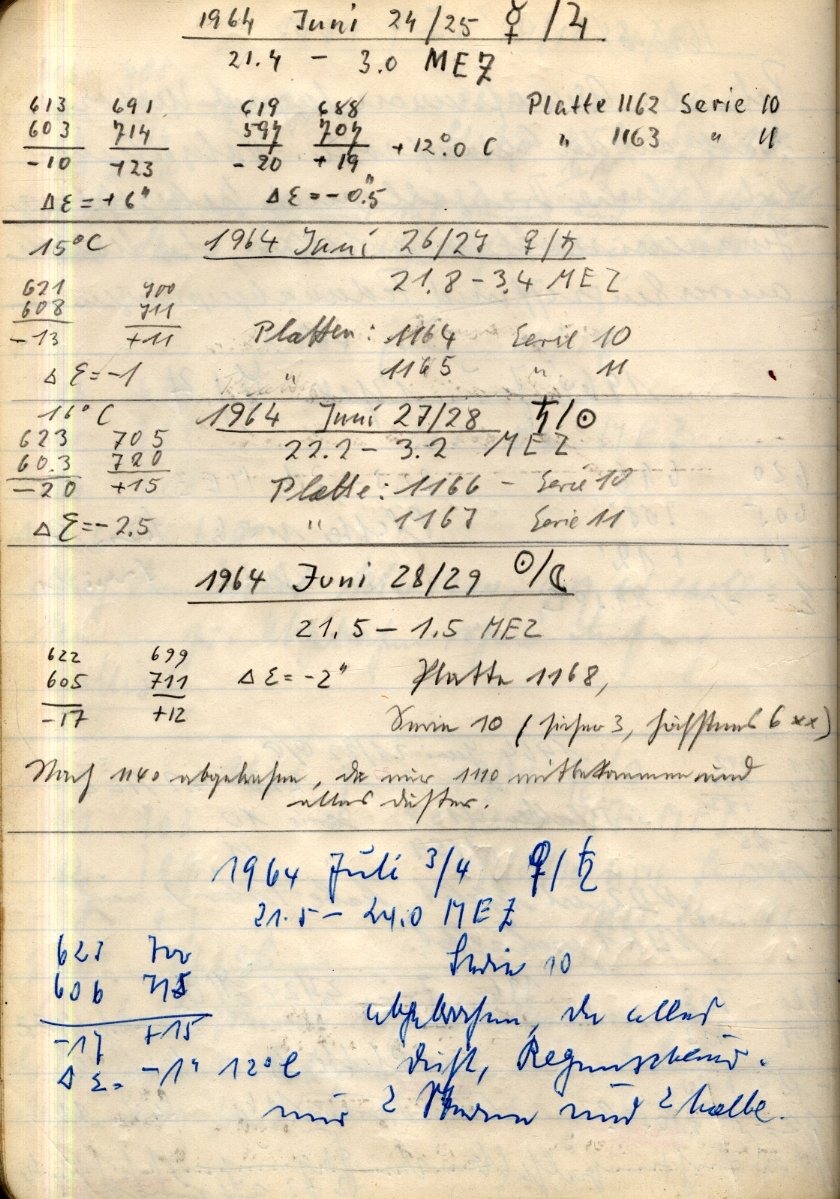 1964 Juni 24/25 ☿/♃
21.4 – 3.0 MEZ
613 691 619 688 Platte 1162 Serie 10
603 714 597 707 +12°.0 C " 1163 " 11
-10 +23 -20 +19
Δ ε = +6" Δ ε = -0".5
15°C 1964 Juni 26/27 ♀/♄
21.8 – 3.4 MEZ
621 700
608 711
-13 +11 Platten: 1164 Serie 10
Δ ε = -1 " 1165 " 11
16°C 1964 Juni 27/28 ♄/☉
623 705 22.2 – 3.2 MEZ
60.3 720
-20 +15 Platte: 1166 – Serie 10
Δ ε = -2.5 " 1167 Serie 11
1964 Juni 28/29 ☉/☾
21.5 – 1.5 MEZ
622 699
605 711 Δ ε = -2" Platte 1168,
-17 +12
Serie 10 (sicher 3, höchstens 6 xx)
Nach 1140 abgebrochen, da nur 1110 mitbekommen und
alles duster.
1964 Juli 3/4 ♀/♄
21.5 – 24.0 MEZ
623 700 Serie 10
606 715
abgebrochen, da alles
-17 +15
Δ ε = -1" 12°C Regenschauer.
nur 2 und 2 halbe.